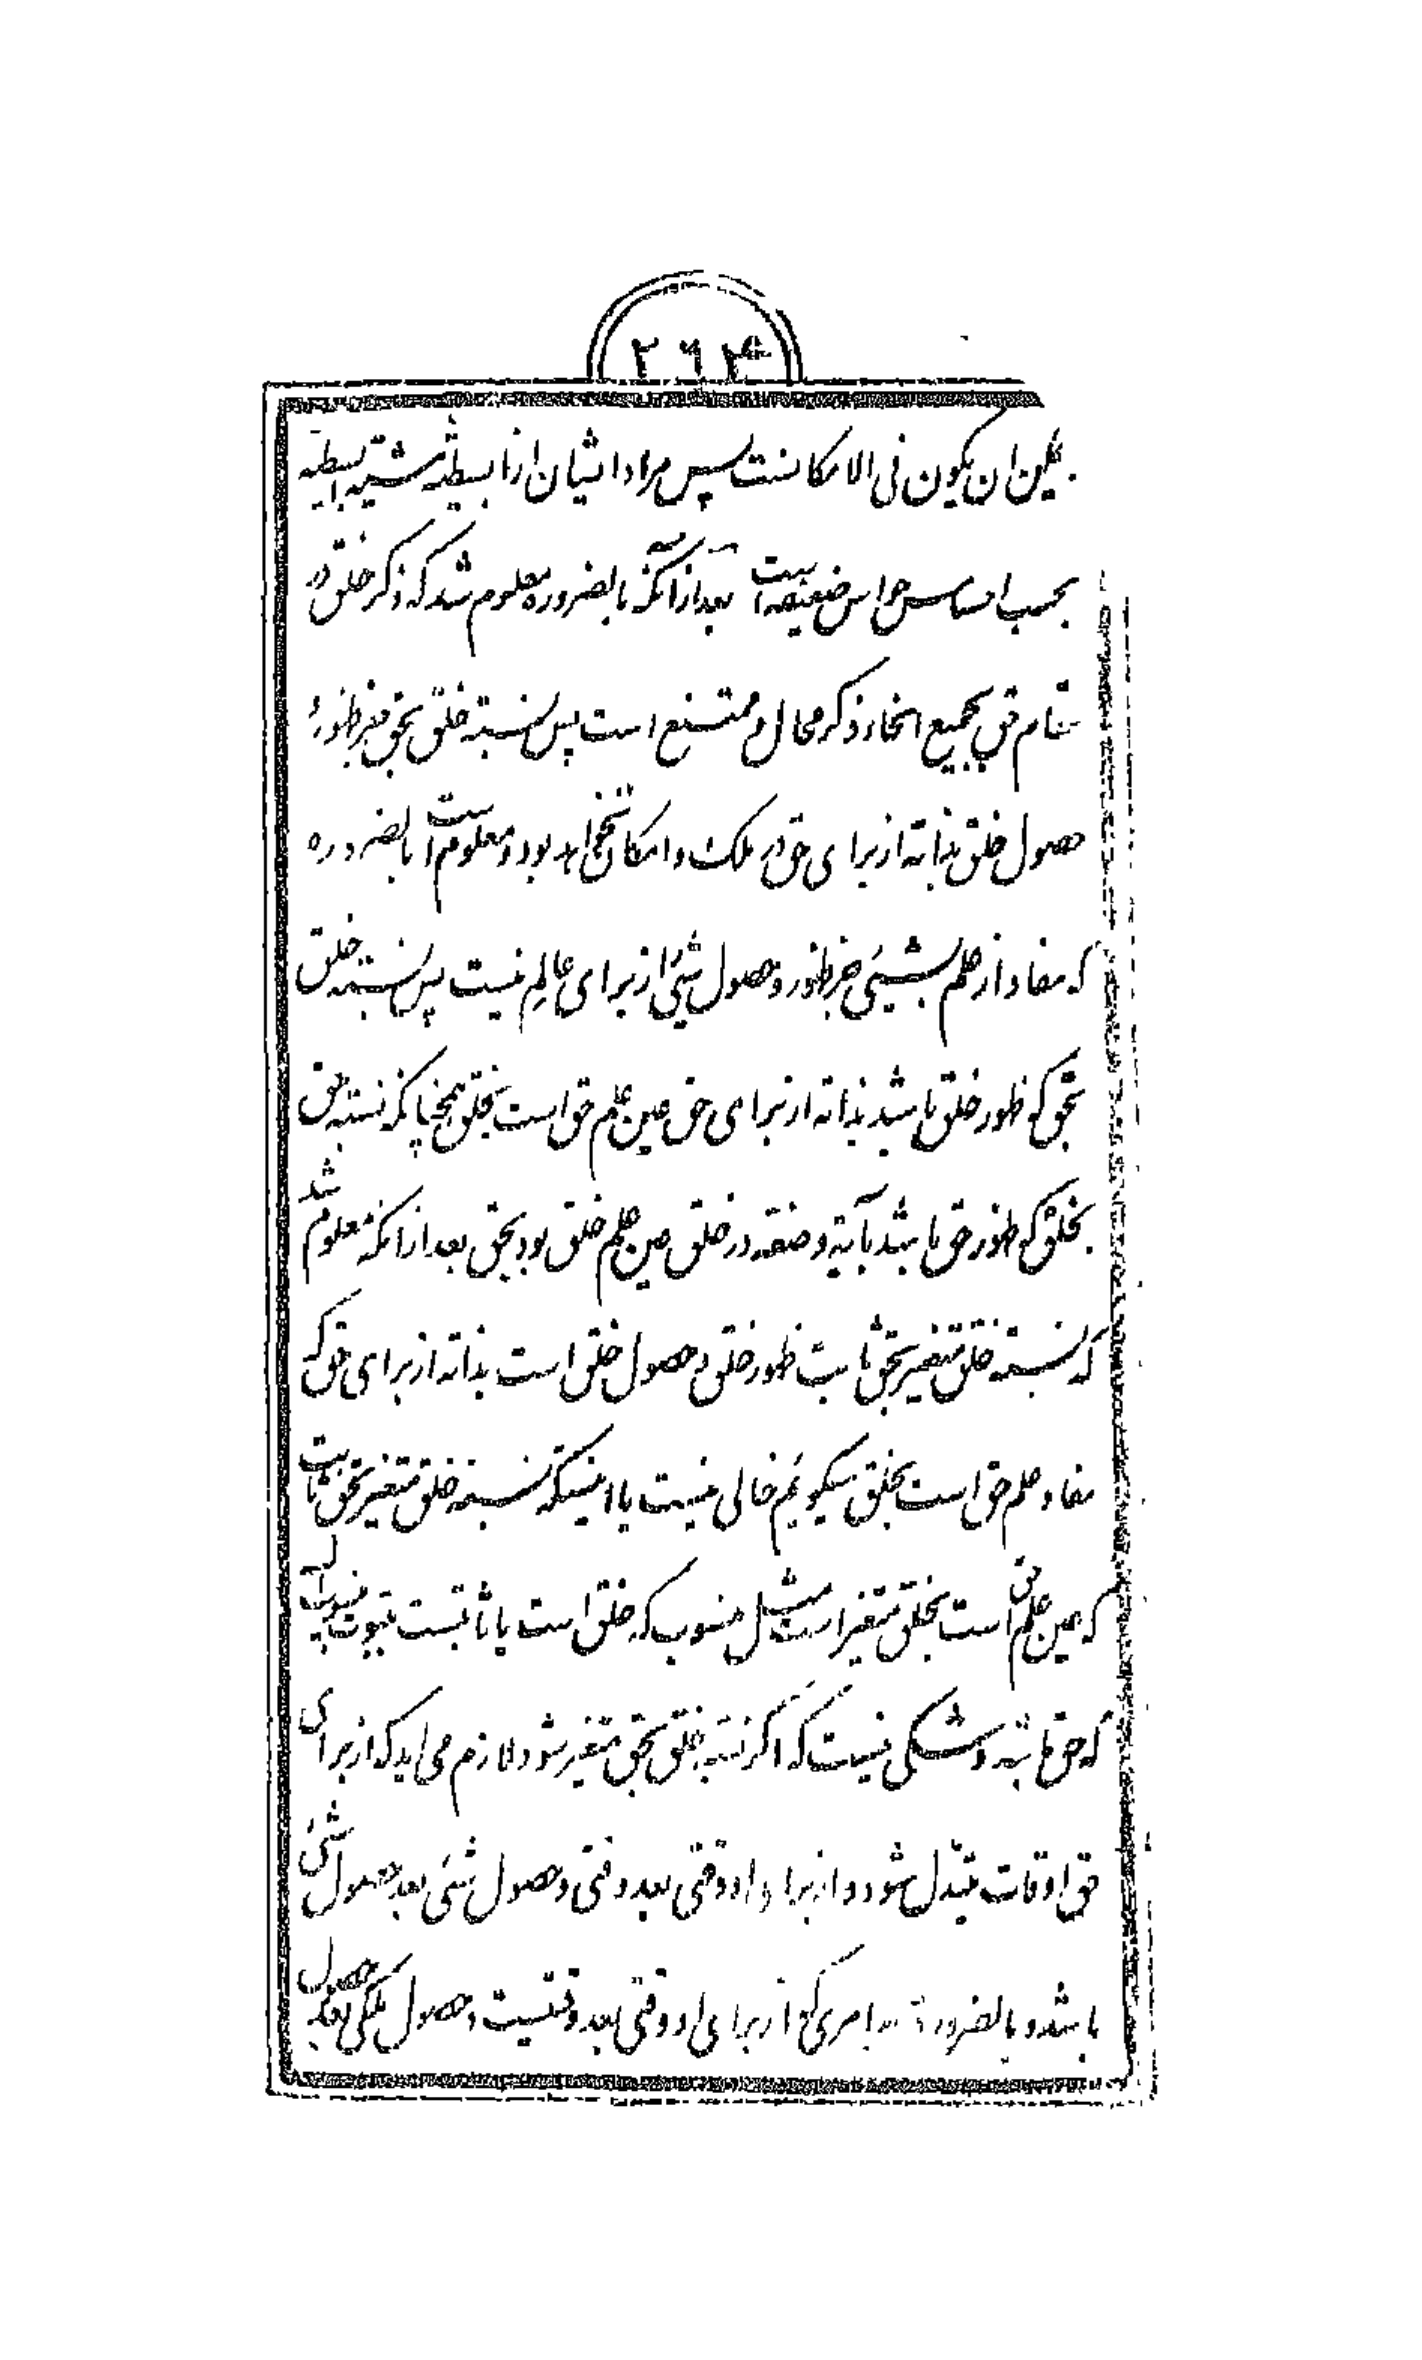 ۲۶۴
یمکن ان یکون فی الامکانست پس مراد ایشان ازا بسیطه مشیه بسیطه
بحسب احساس حواس ضعیفه است بعد از آنکه بالضروره معلوم شد که ذکر خلق در
مقام حق بجمیع انحاء ذکر محال و ممتنع است پس نسبته خلق بحق غیر ظهور
حصول خلق بذاته از برای حق در ملک و امکان نخواهد بود و معلوم است بالضروره
که مفاد از علم بشیئی غیر ظهور و حصول شیئی از برای عالم نیست پس نسبته خلق
بحق که ظهور خلق باشد بذاته از برای حق عین علم حق است بخلق همچنانکه نسبته حق
بخلق که ظهور حق باشد بآیة و صفته در خلق عین علم خلق بود بحق بعد از آنکه معلوم شد
که نسبته خلق متغیر بحق ثابت ظهور خلق و حصول خلق است بذاته از برای حق که
مفاد علم حق است بخلق میگوئیم خالی نیست یا اینکه نسبته خلق متغیر بحق ثابت
که عین علم حق است بخلق متغیر است مثل منسوب که خلق است یا ثابتست بثبوت منسوب الیه
که حق باشد و شکی نیست که اگر نسبته خلق بحق متغیر شود لازم می اید که از برای
حق اوقات متبدل شود و از برای او وقتی بعد وقتی و حصول شئی بعد حصول شئی
باشد و بالضرورة امری که از برای او وقتی بعد وقتیست و حصول ملکی بعد حصول